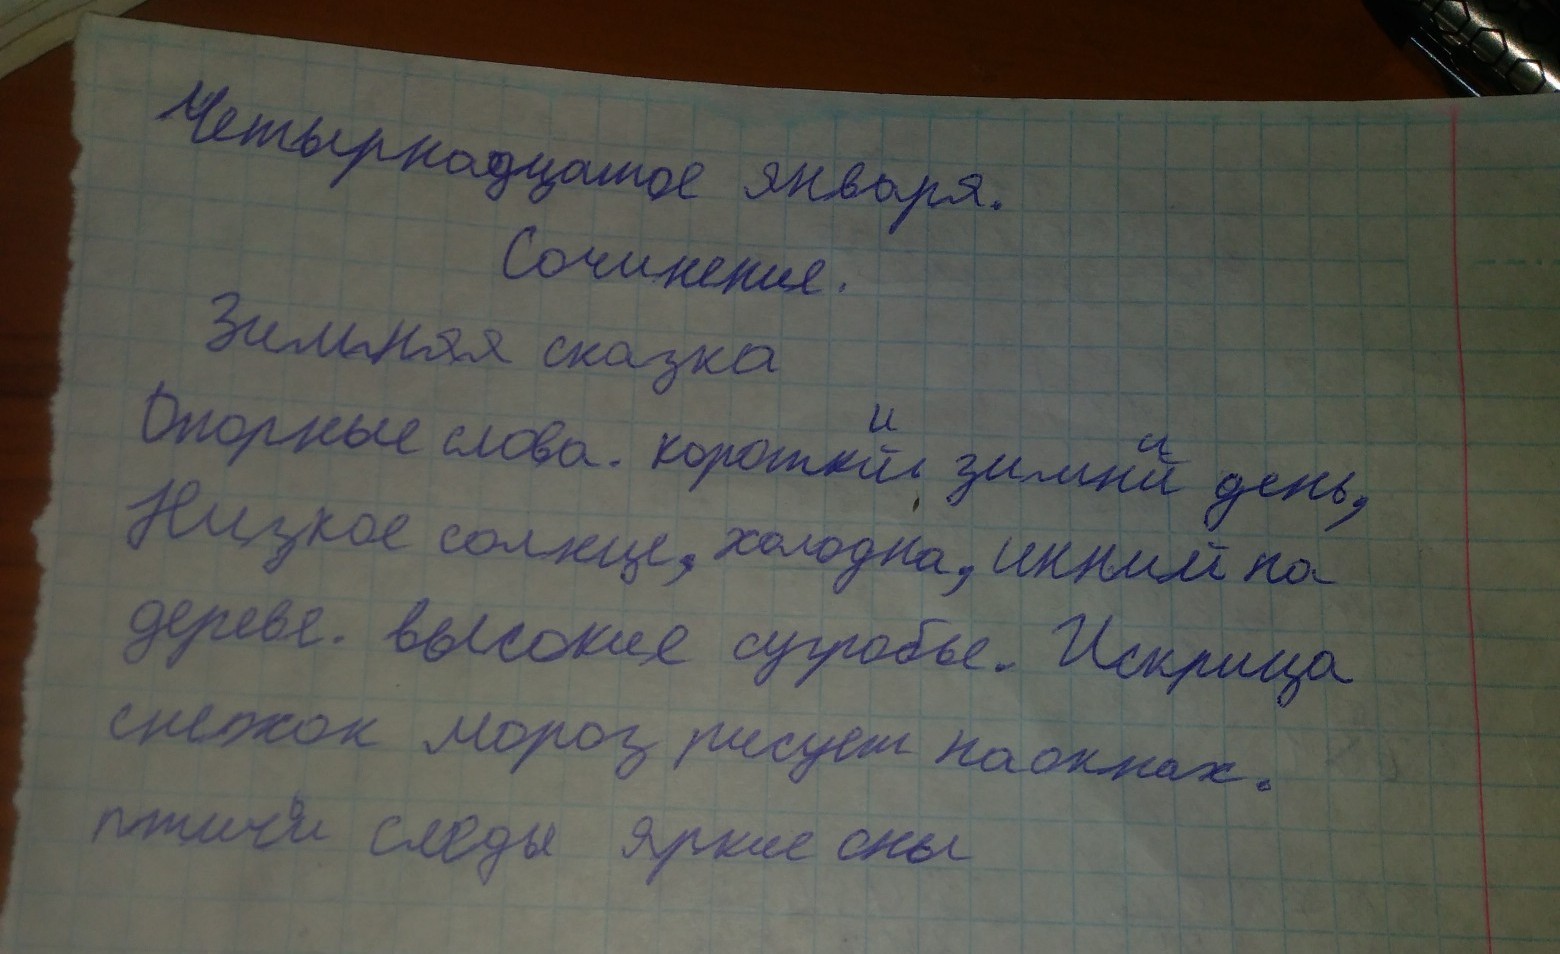 Четырнадцатое января.
Сочинение.
Зимняя сказка
Опорные слова. короткий зимний день,
Низкое солнце, холодна, инний на
дереве. высокие сугробы. Искрица
снежок мороз рисует на окнах.
птичьи следы яркие сны